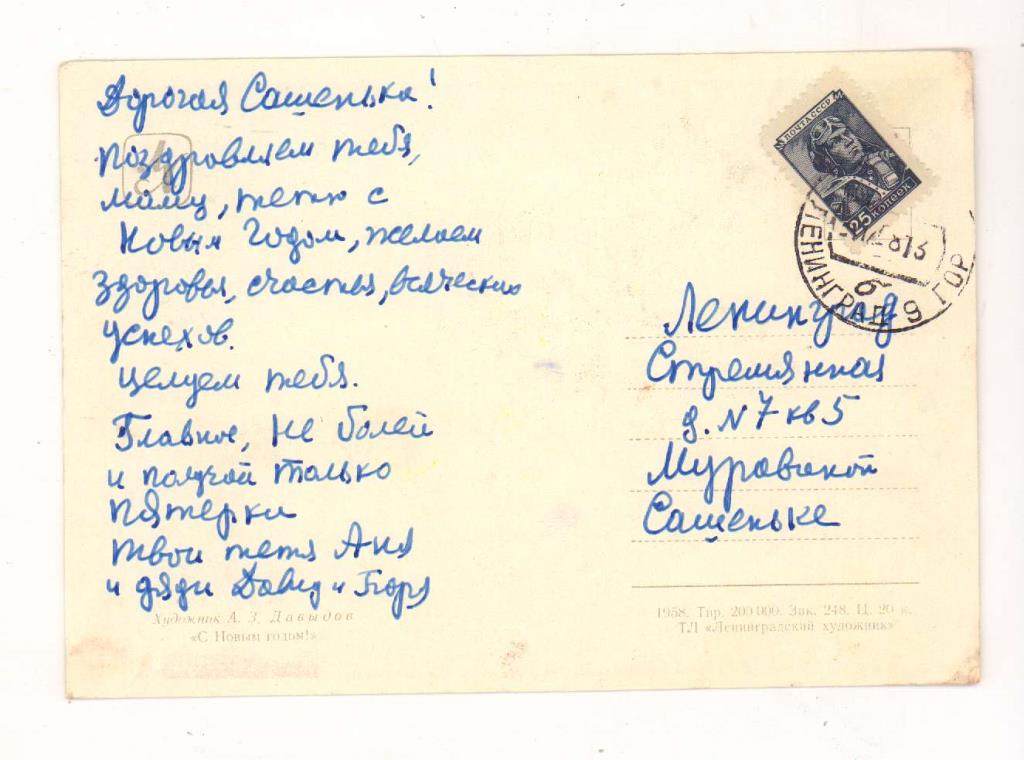 Дорогая Сашенька!
поздровляем тебя,
маму, тетю с
Новым Годом, желаем
здоровья, счастья, всяческих
успехов.
целуем тебя.
Главное, не болей
и получай только
пятерки
твои тетя Аня
и дяди Давид и Боря
Художник А. З. Давыдов
«С Новым годом!»
ПОЧТА СССР
25 КОПЕЕК
ЛЕНИНГРАД 9 ГОР
б
Ленинград
Стремянная
д. N 7 кв 5
Муравиной
Сашеньке
1958. Тир. 200 000. Зак. 248. Ц. 20 к.
ТЛ «Ленинградский художник»